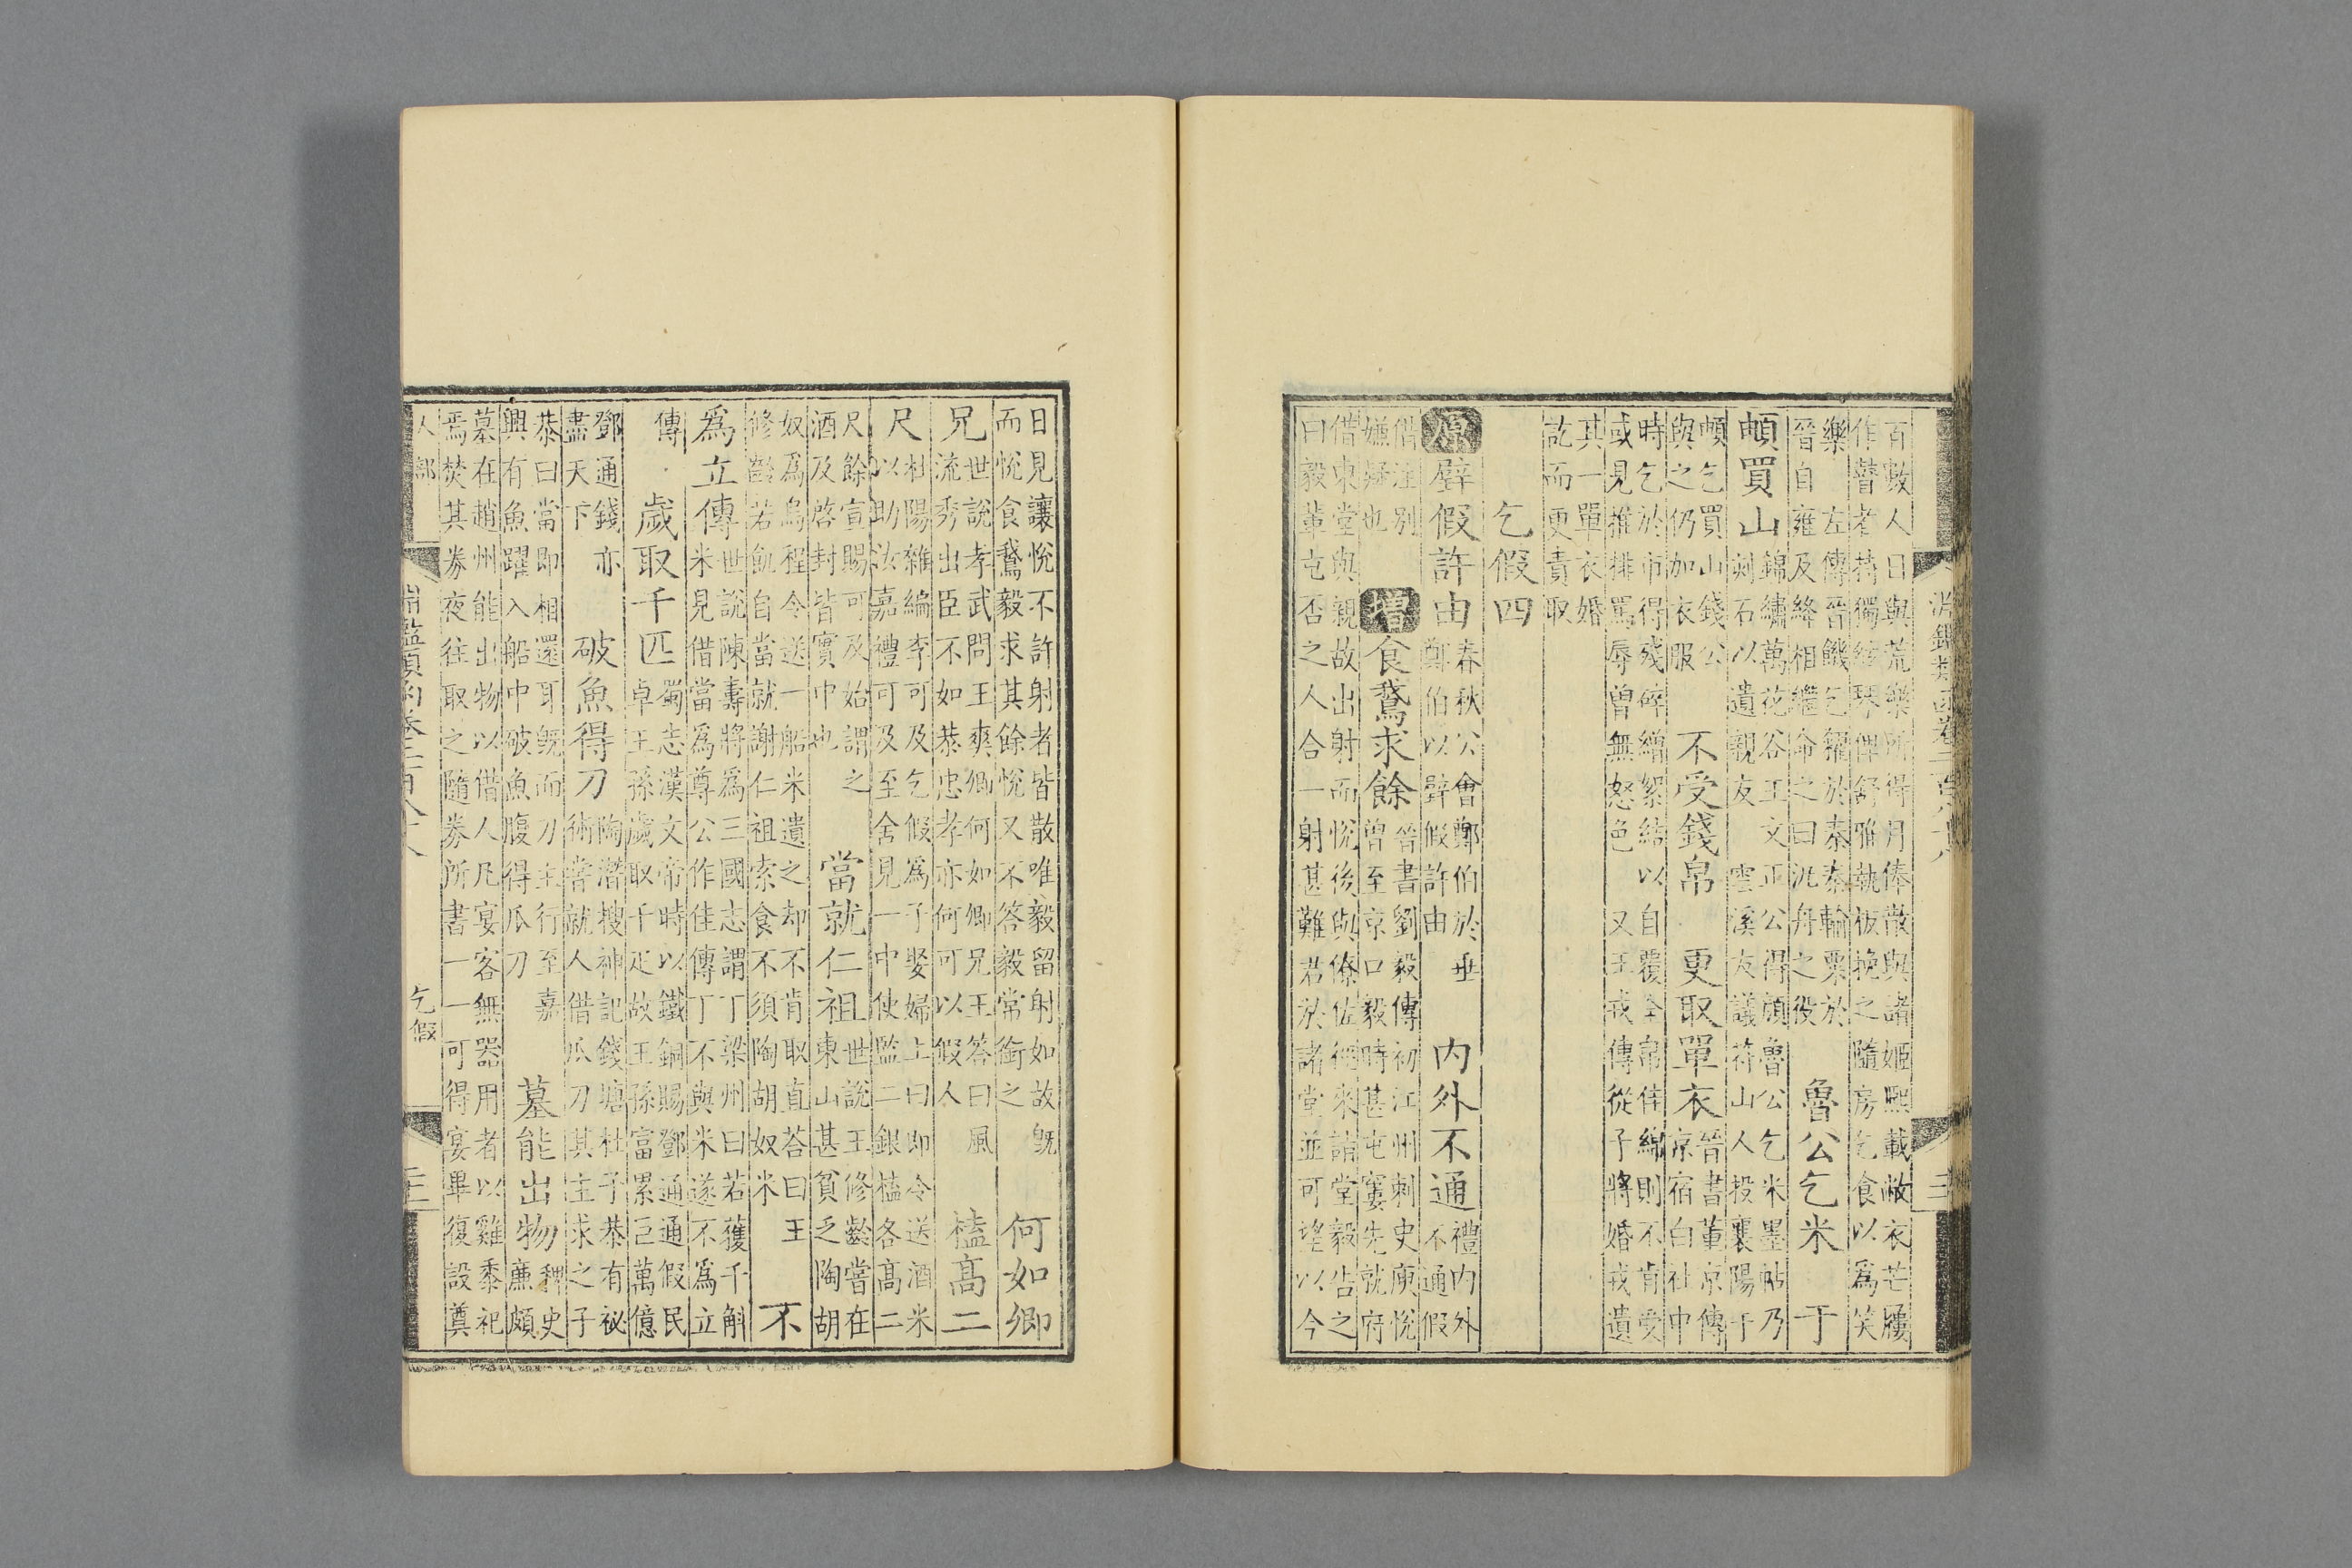 淵鑑類函卷三百八十八 三
百數人日與荒樂所得月俸散與諸姬熙載敝衣芒屨
作瞽者持獨絃琴俾舒雅執板挽之隨房乞食以爲笑
樂 左傳晉饑乞糴於秦秦輸粟於
晉自雍及絳相繼命之曰汎舟之役
魯公乞米 于
頔買山
錦繡萬花谷王文正公得顏魯公乞米墨帖乃
刻石以遺親友 雲溪友議符山人投襄陽于
頔乞買山錢公
與之仍加衣服
不受錢帛 更取單衣
晉書董京傳
京宿白社中
時乞於市得殘碎繒絮結以自覆全帛佳綿則不肯受
或見推排罵辱曾無怒色 又王戎傳從子將婚戎遺
其一單衣婚
訖而更責取
乞假四
原 璧假許由
春秋公會鄭伯於垂
鄭伯以璧假許由
内外不通
禮内外
不通假
借注別
嫌疑也
增 食鵞求餘
晉書劉毅傳初江州刺史庾悅
曾至京口毅時甚屯窶先就府
借東堂與親故出射而悅後與僚佐徑來詣堂毅告之
曰毅輩屯否之人合一射甚難君於諸堂並可望以今
日見讓悅不許射者皆散唯毅留射如故旣
而悅食鵞毅求其餘悅又不答毅常銜之
何如卿
兄
世說孝武問王爽卿何如卿兄王答曰風
流秀出臣不如恭忠孝亦何可以假人
榼高二
尺
杜陽雜編李可及乞假爲子娶婦上曰即令送酒米
以助汝嘉禮可及至舍見一中使監二銀榼各高二
尺餘宣賜可及始謂之
酒及啓封皆實中也
當就仁祖
世說王修齡嘗在
東山甚貧乏陶胡
奴爲烏程令送一船米遺之却不肯取直荅曰王
修齡若飢自當就謝仁祖索食不須陶胡奴米
不
爲立傳
世說陳壽將爲三國志謂丁梁州曰若獲千斛
米見借當爲尊公作佳傳丁不與米遂不爲立
傳
歲取千匹
蜀志漢文帝時以鐵銅賜鄧通通假民
卓王孫歲取千疋故王孫富累巨萬億
鄧通錢亦
盡天下
破魚得刀
陶潛搜神記錢塘杜子恭有祕
術嘗就人借瓜刀其主求之子
恭曰當即相還耳旣而刀主行至嘉
興有魚躍入船中破魚腹得瓜刀
墓能出物
稗史
廉頗
墓在趙州能出物以借人凡宴客無器用者以雞黍祀
焉焚其券夜往取之隨券所書一一可得宴畢復設奠
人部 淵鑑類函卷三百八十八 乞假 三